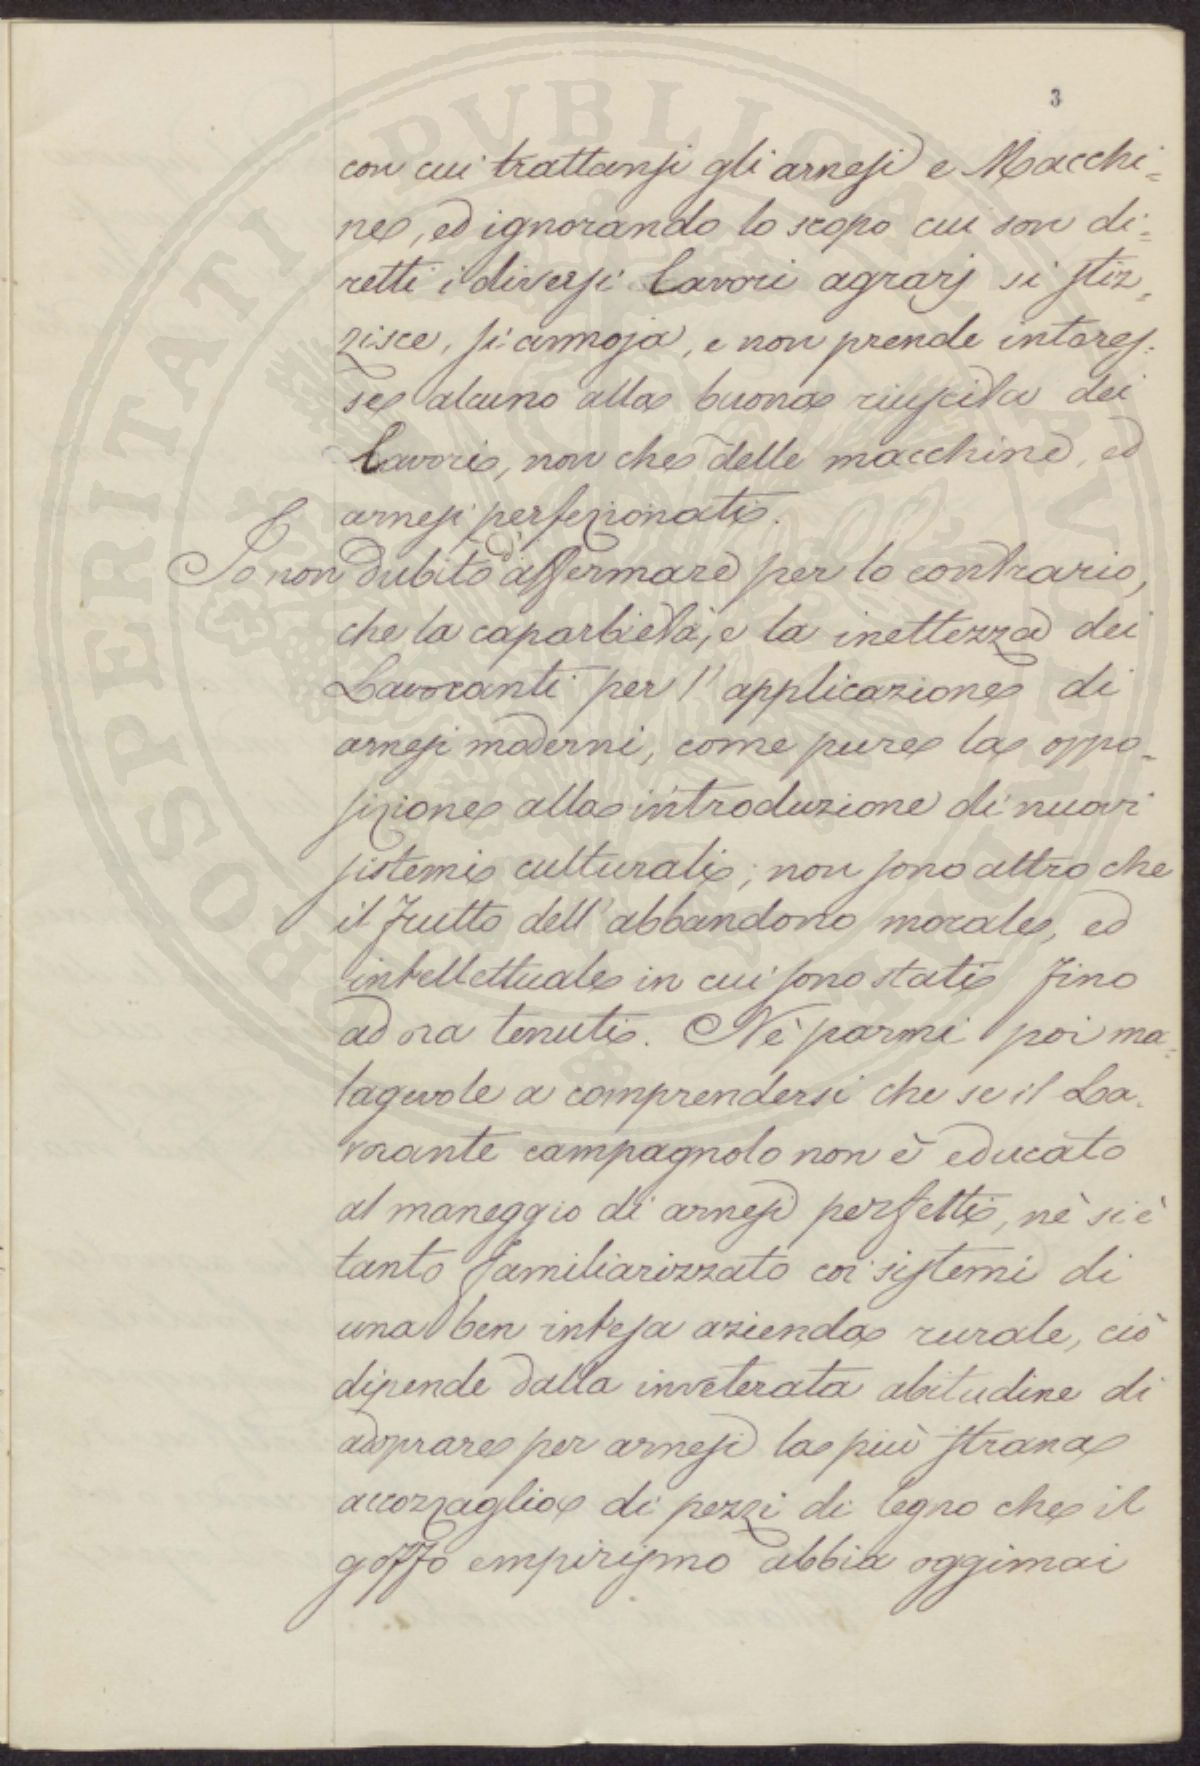 3
con cui trattansi gli arnesi e Macchi=
ne, ed ignorando lo scopo cui son di=
retti i diversi lavori agrarj si stiz=
zisce, si annoja, e non prende interes=
se alcuno alla buona riuscita dei
lavori, non che delle macchine, ed
arnesi perfezionati.
Io non dubito d'affermare per lo contrario,
che la caparbietà, e la inettezza dei
Lavoranti per l'applicazione di
arnesi moderni, come pure la oppo=
sizione alla introduzione di nuovi
sistemi culturali; non sono altro che
il frutto dell'abbandono morale, ed
intellettuale in cui sono stati fino
ad ora tenuti. Nè parmi poi ma=
lagevole a comprendersi che se il La=
vorante campagnolo non è educato
al maneggio di arnesi perfetti, nè si è
tanto familiarizzato coi sistemi di
una ben intesa azienda rurale, ciò
dipende dalla inveterata abitudine di
adoprare per arnesi la più strana
accozzaglia di pezzi di legno che il
goffo empirismo abbia oggimai
PROSPERITATI PUBLICAE AUGENDAE